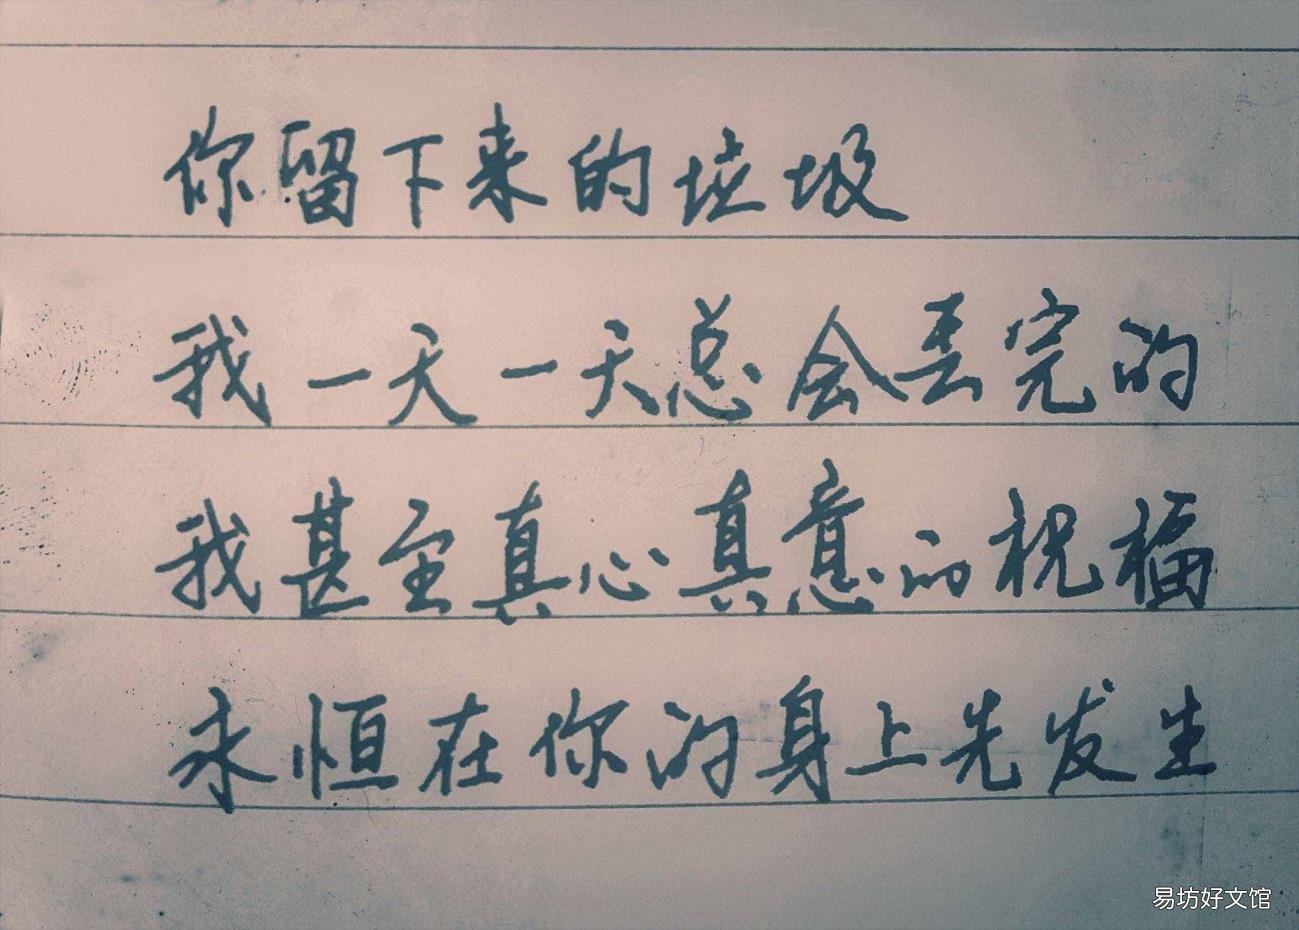 你留下来的垃圾
我一天一天总会丢完的
我甚至真心真意的祝福
永恒在你的身上先发生
易坊好文馆